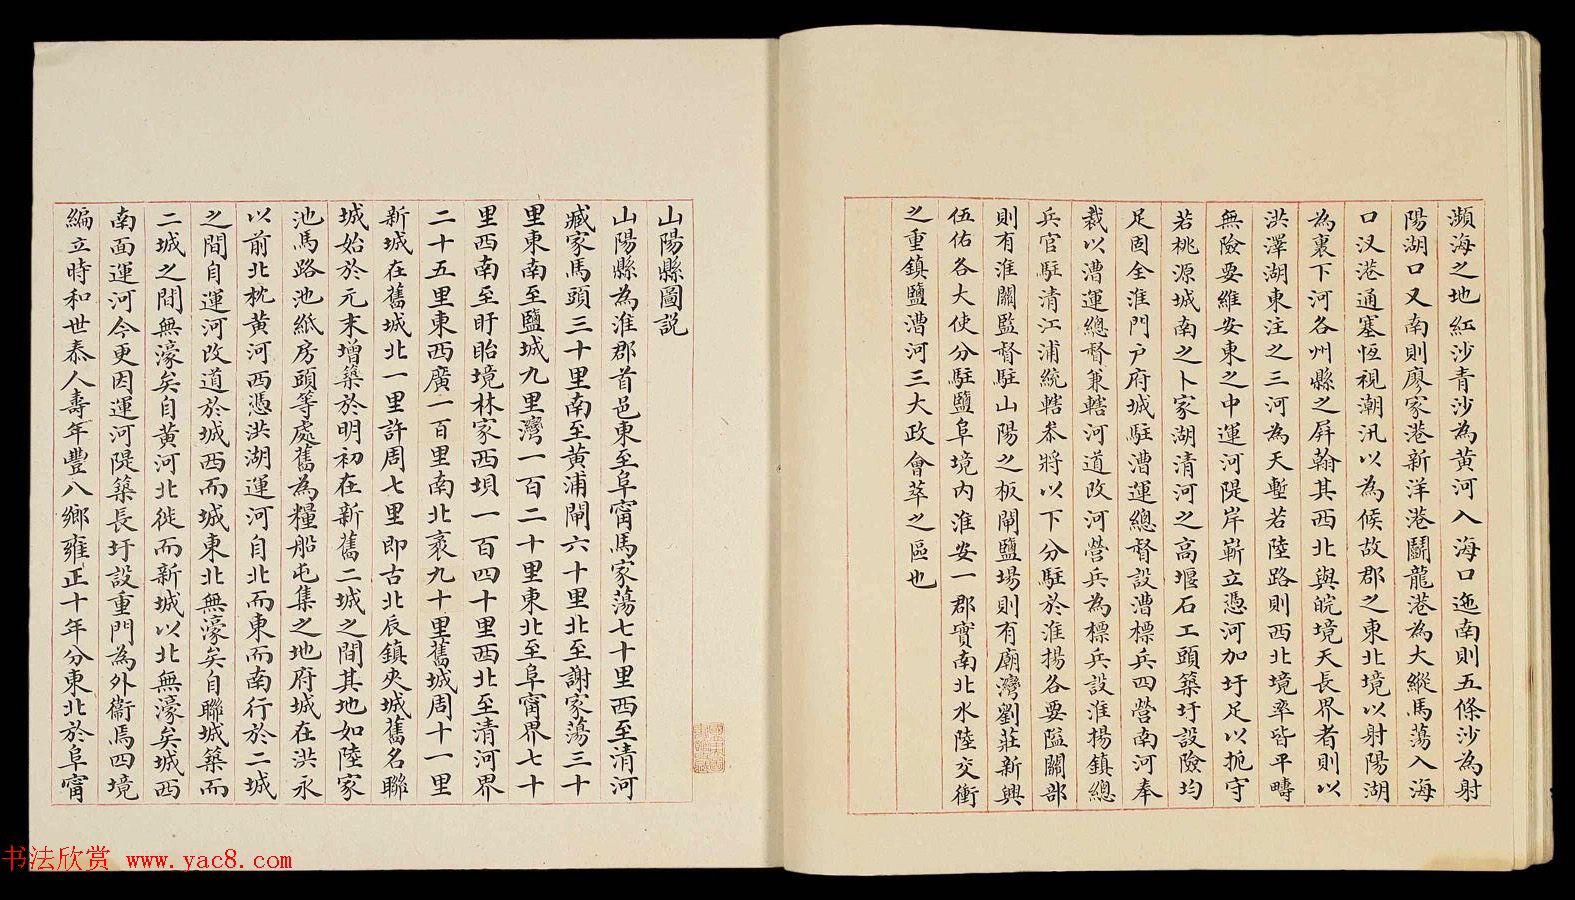 瀕海之地紅沙青沙為黃河入海口迤南則五條沙為射
陽湖口又南則廖家港新洋港鬭龍港為大縱馬蕩入海
口汊港通塞恆視潮汛以為候故郡之東北境以射陽湖
為裏下河各州縣之屏翰其西北與皖境天長界者則以
洪澤湖東注之三河為天塹若陸路則西北境率皆平疇
無險要維安東之中運河隄岸嶄立憑河加圩足以扼守
若桃源城南之卜家湖清河之高堰石工頭築圩設險均
足固全淮門戶府城駐漕運總督設漕標兵四營南河奉
裁以漕運總督兼轄河道改河營兵為標兵設淮揚鎮總
兵官駐清江浦統轄叅將以下分駐於淮揚各要隘關部
則有淮關監督駐山陽之板閘鹽場則有廟灣劉莊新興
伍佑各大使分駐鹽阜境内淮安一郡實南北水陸交衝
之重鎮鹽漕河三大政會萃之區也
山陽縣圖説
山陽縣為淮郡首邑東至阜甯馬家蕩七十里西至清河
臧家馬頭三十里南至黃浦閘六十里北至謝家蕩三十
里東南至鹽城九里灣一百二十里東北至阜甯界七十
里西南至盱眙境林家西壩一百四十里西北至清河界
二十五里東西廣一百里南北袤九十里舊城周十一里
新城在舊城北一里許周七里即古北辰鎮夾城舊名聯
城始於元末增築於明初在新舊二城之間其地如陸家
池馬路池紙房頭等處舊為糧船屯集之地府城在洪永
以前北枕黃河西憑洪湖運河自北而東而南行於二城
之間自運河改道於城西而城東北無濠矣自聯城築而
二城之間無濠矣自黃河北徙而新城以北無濠矣城西
南面運河今更因運河隄築長圩設重門為外衞焉四境
編立時和世泰人壽年豐八鄉雍正十年分東北於阜甯
书法欣赏 www.yac8.com